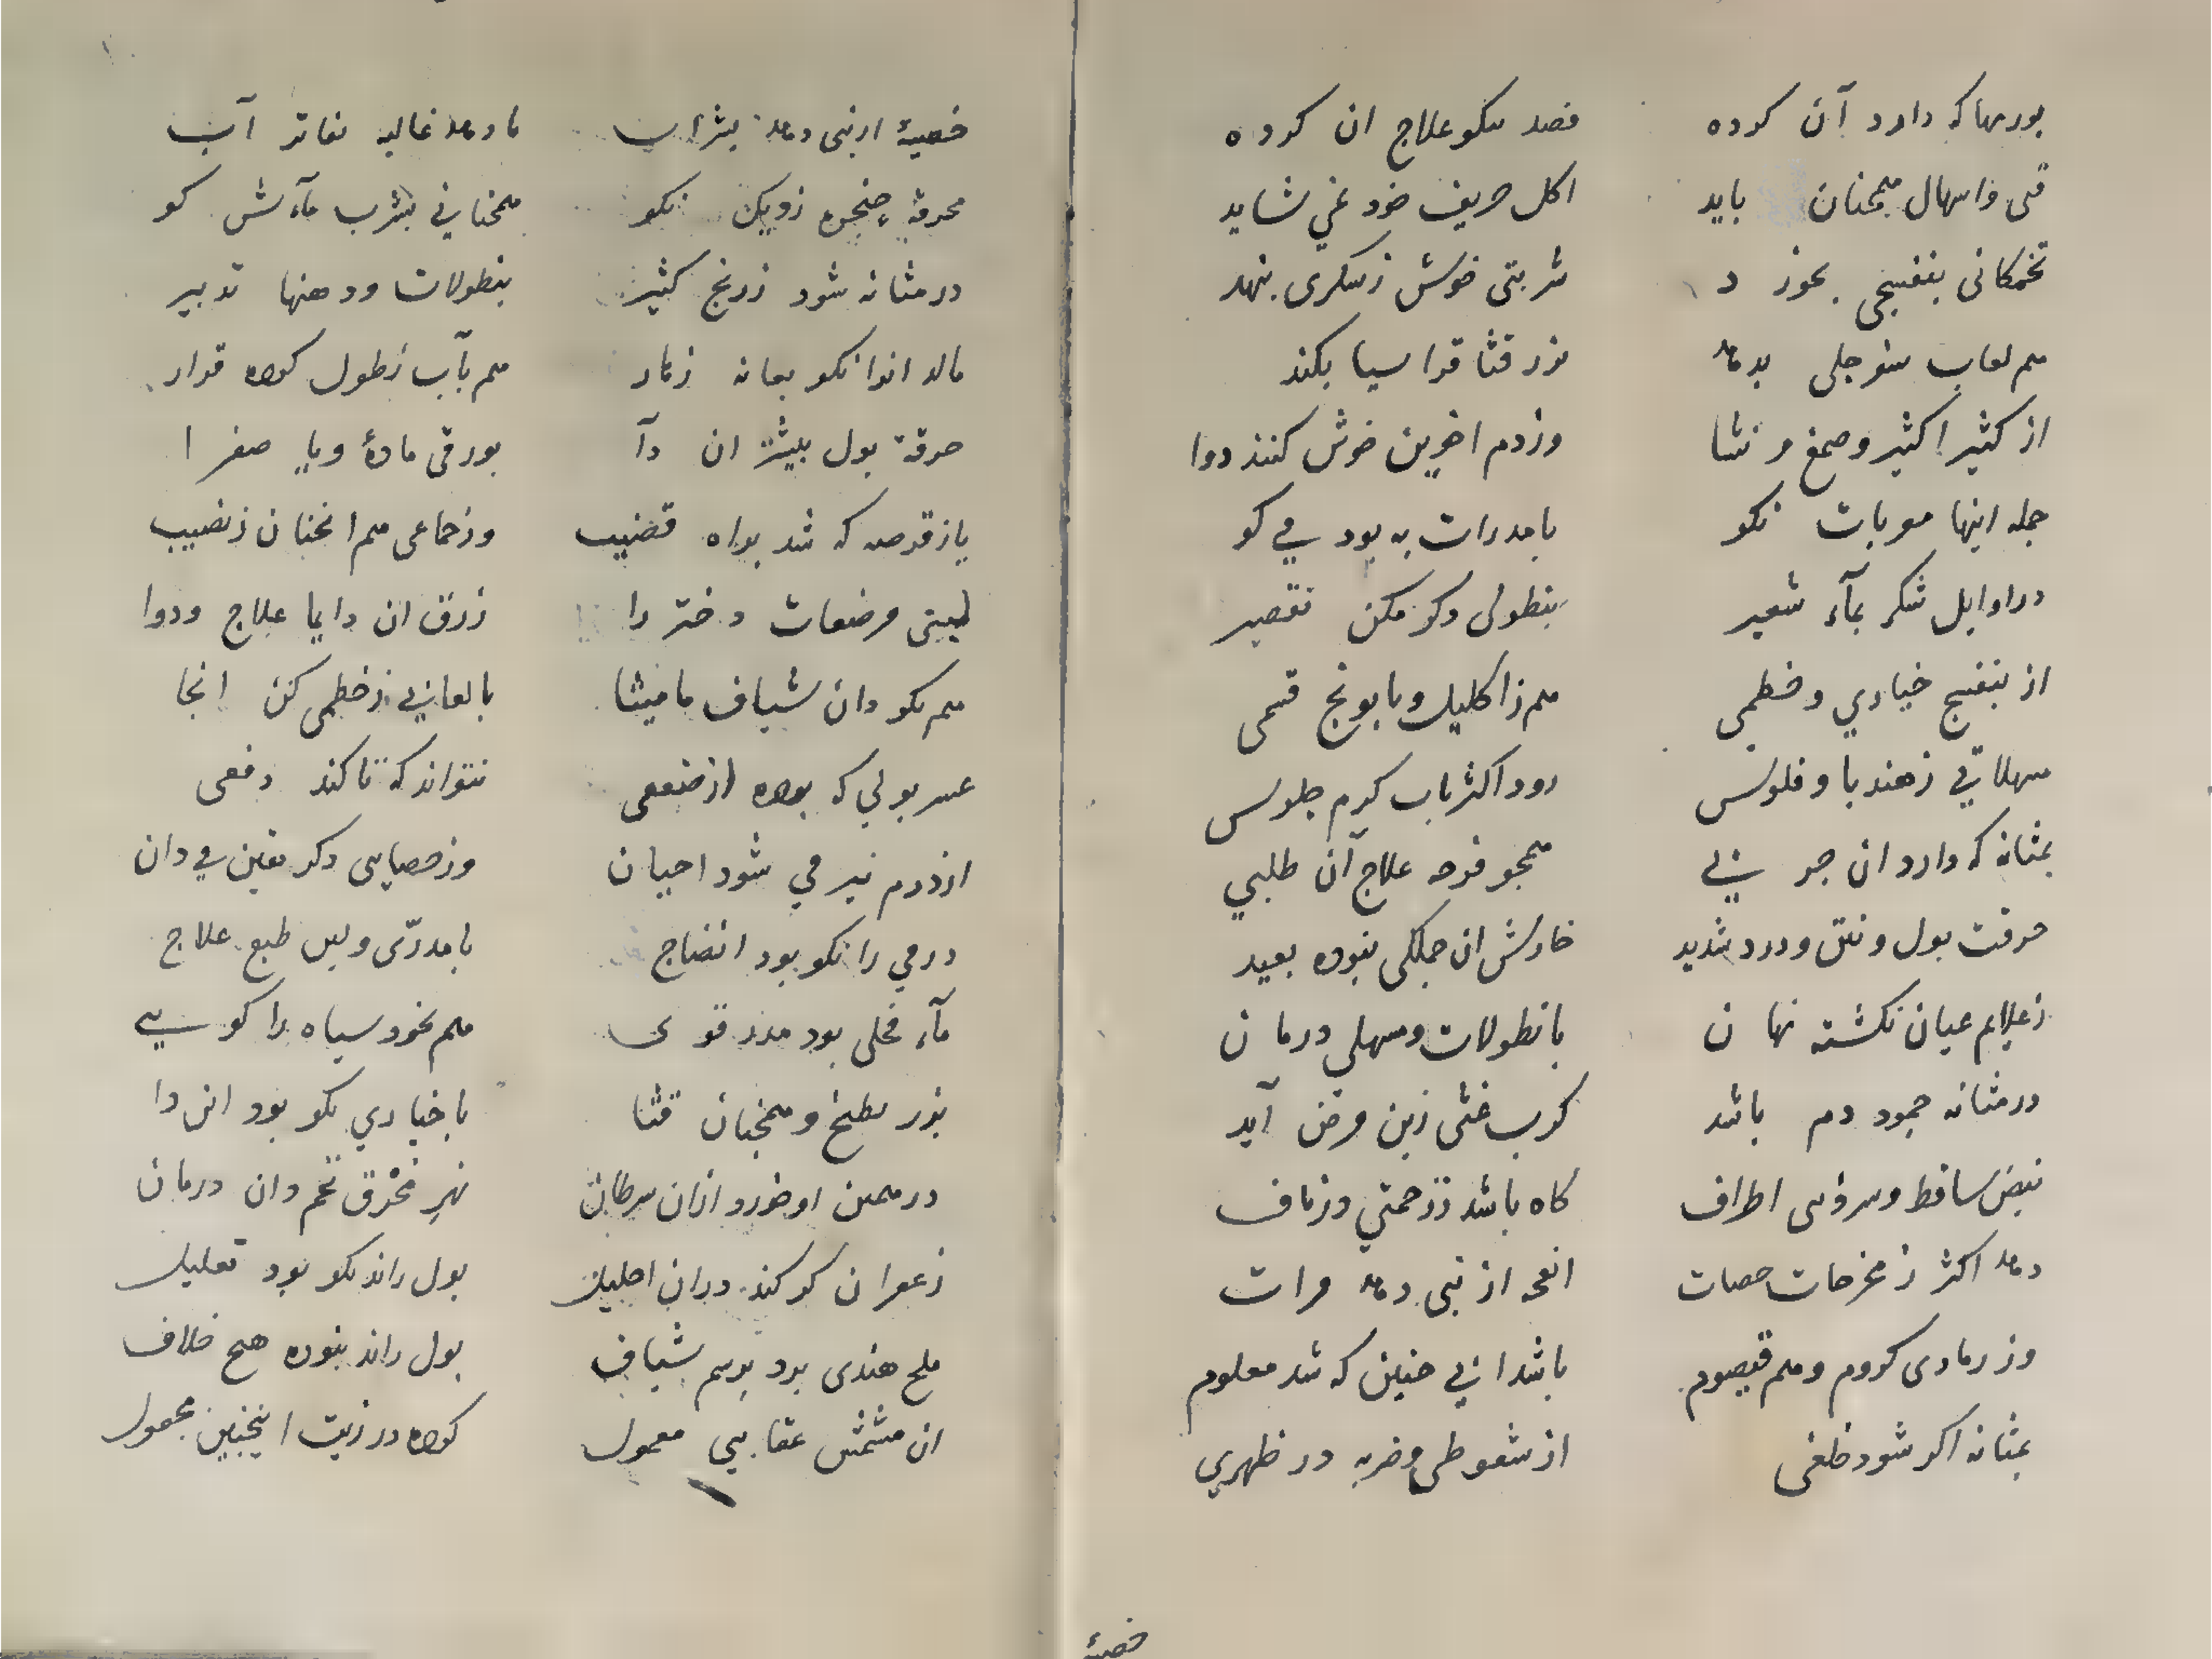 بورمها که دارد آن کرده فصد نکو علاج ان کرده
قی واسهال همچنان باید اکل حریف خود نمی شاید
تخمکانی بنفسجی بخوز د شربتی خوش ز سکری بنهد
هم لعاب سفرجلی بدهد بزر قثا قراسیا بکند
از کثیرا کثیر وصمغ و نشا وز دم اخوین خوش کنند دوا
جمله اینها مربات نکو با مدرات به بود می کو
در اوایل شکر بمآء شعیر بنطولی دکر مکن تقصیر
از بنفسج خیاری وخطمی هم ز اکلیل وبابونج قسمی
سهلاتی ز هندبا و فلوس رود اکثر باب کرم جلوس
بمثانه که دارد ان جر بی همچو قرحه علاج آن طلبی
حرقت بول و نتن ودرد شدید خارش ان جملکی نبوده بعید
ز علایم عیان نکشته نها ن با نطولات ومسهلی درما ن
در مثانه جمود دم باشد کرب غشی زین مرض آید
نبض ساقط وسردئی اطراف کاه باشد ززحمتی وزعاف
دهد اکثر ز مخرجات حصات انفحه ارنبی دهد مرات
وز رمادی کروم وهم قیصوم باشد ازی چنین که شد معلوم
بمثانه اکر شود خلعی از سقوطی وضربه در ظهری
خصیه
خصیهٔ ارنبی دهد بشراب یا دهد غالیه بفاتر آب
محرقهٔ حنجره زدیکن نکو همچنانی بشرب مآءش کو
در مثانه شود ز رنج کثیر بنطولات ودهنها تدبیر
مالد انرا نکو بعانه زنار هم بآب نطول کرده قرار
حرقهٔ بول بیشتر ان دآ بورقی مادهٔ ویا صفرا
یا ز قرحه که شد براه قضیب وز جماعی هم انچنان ز نصیب
لبینی مرضعات دختر را زرق ان دایما علاج ودوا
هم نکو دان شیاف مامیثا با لعابی ز خطمی کن انجا
عسر بولی که بوده از ضعفی نتواند که تا کند دفعی
از ورم نیز می شود احیان وز حصیاتی دکر یقین می دان
ورمی را نکو بود انضاج با مدری ولین طبع علاج
مآء فجلی بود مدر قوی هم نخود سیاه را کویی
بزر بطیخ و همچنان قثا با خیاری نکو بود ان را
در همین او خورد ازان سرطان نهرِ محرق تخم دان درمان
زعفران کر کند دران احلیل بول راند نکو بود تعلیل
ملح هندی برد برسم شیاف بول راند نبوده هیچ خلاف
ان مشمش عقابیی معمول کرده در زیت اینچنین محمول